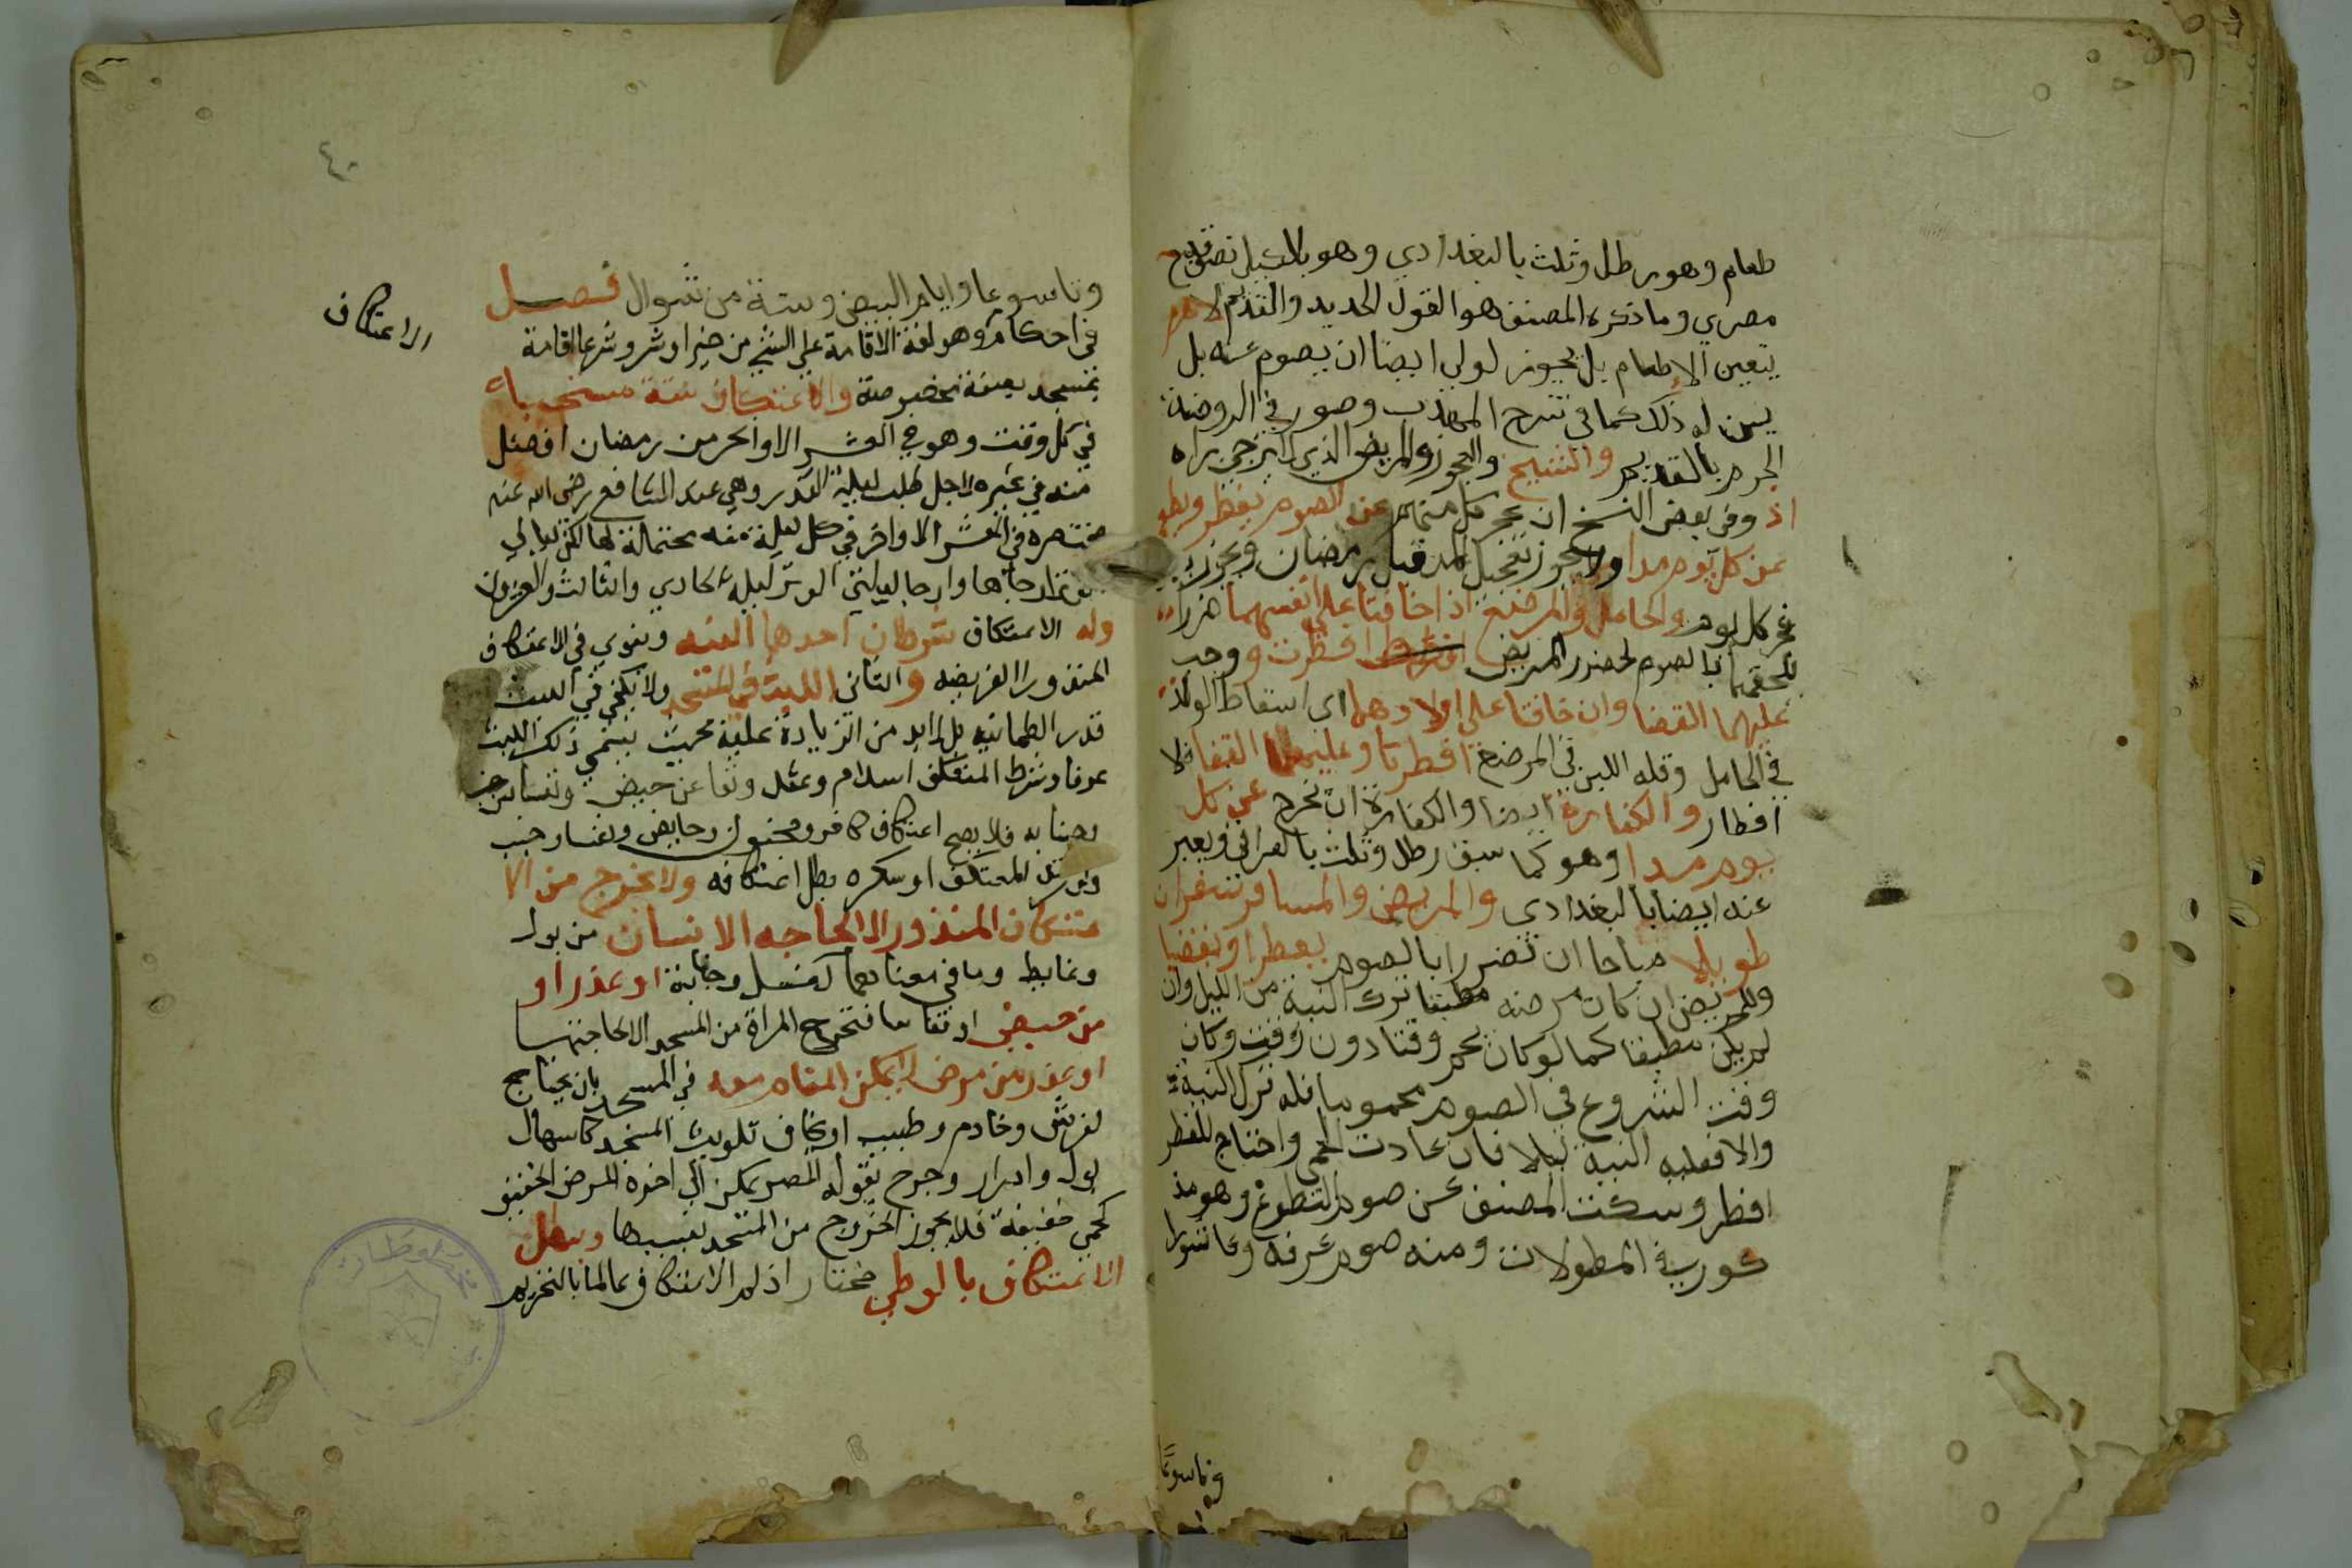 طعام وهو رطل وثلث بالبغدادي وهو بالكيل نصف قدح
مصري وما ذكره المصنف هو القول الجديد والقديم لا
يتعين الاطعام بل يجوز لولي ايضا ان يصوم عنه بل
يسن له ذلك كما في شرح المهذب وصوب في الروضة
الجزم بالقديم والشيخ والعجوز والمريض الذي لا يرجي براه
اذ وفي بعض النسخ ان عجز كل منهم عن الصوم يفطر ويطعم
عن كل يوم مدا ولا يجوز تعجيل المد قبل رمضان ويجوز بعد
فجر كل يوم والحامل والمرضع اذا خافتا علي انفسهما ضررا
يلحقهما بالصوم كضرر المريض افطرت ووجب
عليهما القضا وان خافتا علي اولادهما اي اسقاط الولد
في الحامل وقلة اللبن في المرضع افطرتا وعليهما القضا للا
افطار والكفارة ايضا والكفارة ان تخرج عن كل
يوم مدا وهو كما سبق رطل وثلث بالعراقي ويعبر
عنه ايضا بالبغدادي والمريض والمسافر سفرا
طويلا مباحا ان تضررا بالصوم يفطرا ويقضيا
وللمريض ان كان مرضه مطبقا ترك النية من الليل وان
لم يكن مطبقا كما لو كان يحم وقتا دون وقت وكان
وقت الشروع في الصوم محموما فله ترك النية
والا فعليه النية ليلا فان عادت الحمي واحتاج للفطر
افطر وسكت المصنف عن صوم التطوع وهو مذ
كور في المطولات ومنه صوم عرفه وعاشورا
وتاسوعا
٤٠
الاعتكاف
وتاسوعا وايام البيض وستة من شوال فصل
في احكام وهو لغة الاقامة علي الشي من خير او شر وشرعا اقامة
بمسجد بصفة مخصوصة والاعتكاف سنة مستحبة
في كل وقت وهو في العشر الاواخر من رمضان افضل
منه في غيره لاجل طلب ليلة القدر وهي عند الشافعي رضي الله عنه
منحصرة في العشر الاواخر في كل ليلة منه محتملة لها لكن ليالي
الوتر ارجاها وارجا ليالي الوتر ليلة الحادي والثالث والعشرون
وله الاعتكاف شرطان احدها النية وينوي في الاعتكاف
المنذور الفريضة والثاني اللبث في المسجد ولا يكفي في اللبث
قدر الطمانينة بل لا بد من الزيادة عليه بحيث يسمي ذلك اللبث
عرفا وشرط المعتكف اسلام وعقل ونقا عن حيض ونفاس
وجنابه فلا يصح اعتكاف كافر ومجنون وحايض ونفسا وجنب
ولو ارتد المعتكف او سكره بطل اعتكافه ولا يخرج من الا
عتكاف المنذور الا لحاجة الانسان من بول
وغايط وما في معناهما كغسل وجنابة او عذر او
من حيض او نفاسا فتخرج المراة من المسجد لاجلهما
او عذر من مرض لا يمكن المقام معه في المسجد بان يحتاج
لفرش وخادم وطبيب او يخاف تلويث المسجد كاسهال
بول وادرار وخرج بقوله المص يمكن الي اخره المرض الخفيف
كحمي خفيفة فلا يجوز الخروج من المسجد بسببها ويبطل
الاعتكاف بالوطي مختارا ذاكر الاعتكاف عالما بالتحريم